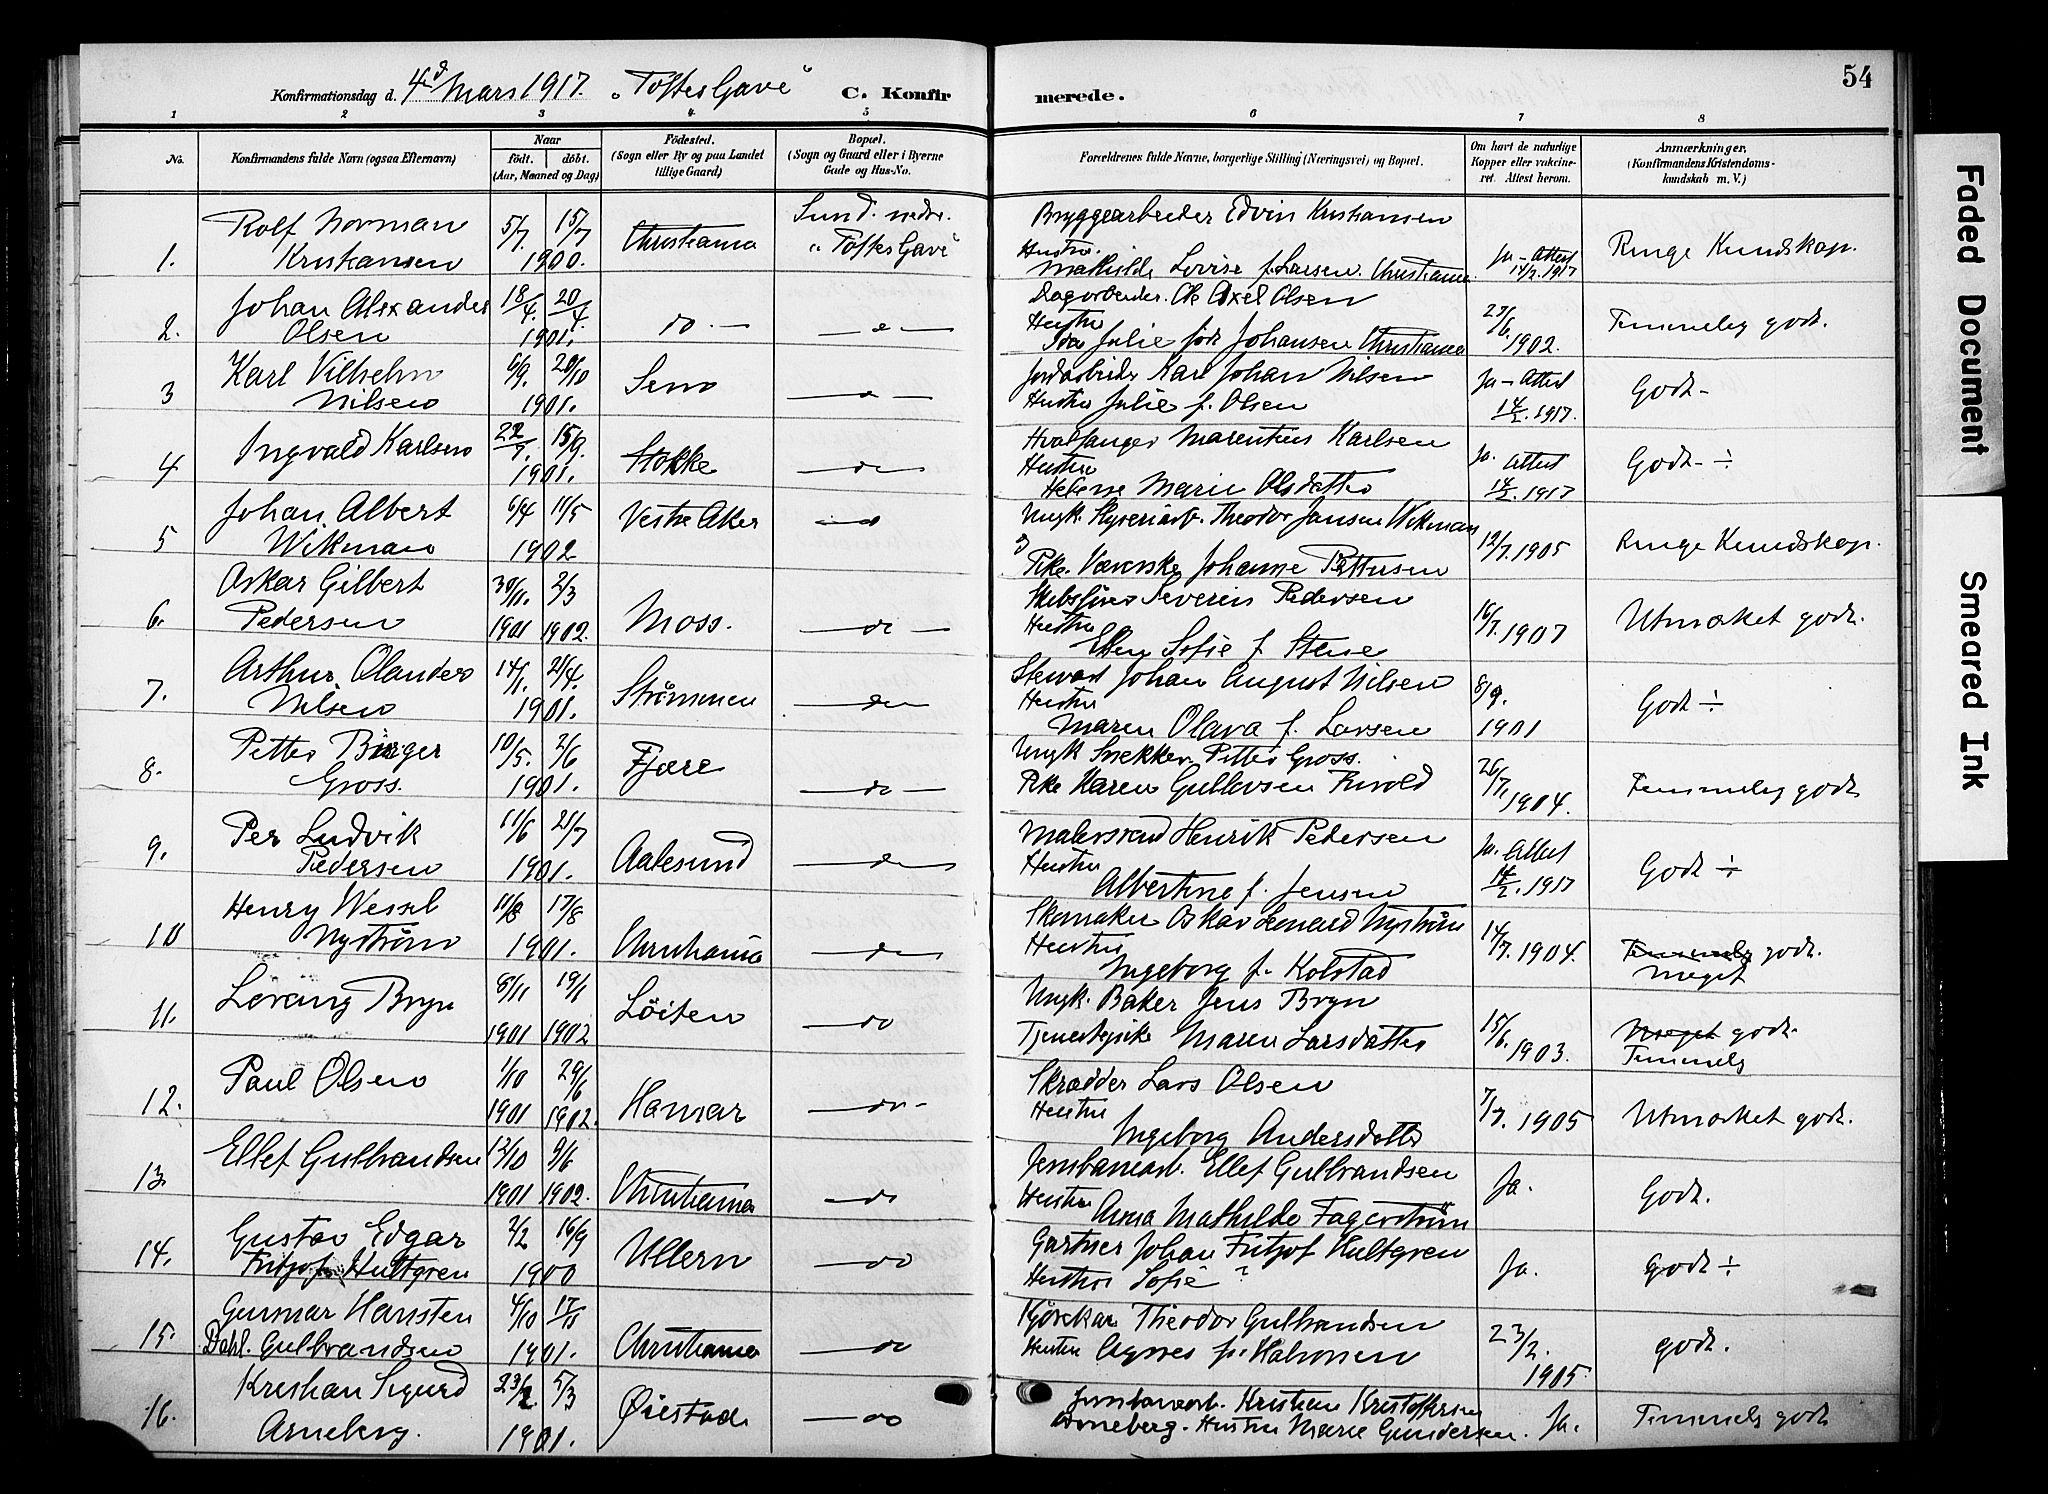 54
Konfirmationsdag d. 4de Mars 1917. "Toftes Gave" C. Konfirmerede.
1 2 3 4 5 6 7 8
No.
Konfirmandens fulde Navn (ogsaa Efternavn)
Naar
födt. döbt.
(Aar, Maaned og Dag)
Födested.
(Sogn eller By og paa Landet
tillige Gaard)
Bopæl.
(Sogn og Gaard eller i Byerne
Gade og Hus-No.
Forældrenes fulde Navne, borgerlige Stilling (Næringsvei) og Bopæl.
Om havt de naturlige
Kopper eller vakcine-
ret. Attest herom.
Anmærkninger.
(Konfirmandens Kristendoms-
kundskab m. V.)
1. Rolf Norman Kristiansen 5/7. 15/7 1900. Christiania Sund. nedr. "Toftes Gave"
Bryggearbeider Edvin Kristiansen
Hustru Mathilde Lovise f. Larsen. Christiania
Ja - Attest 14/2. 1917 Ringe Kundskap.
2. Johan Alexander Olsen 18/4. 20/4. 1901. do. do
Dagarbeider. Ole Axel Olsen
Hustru Ida Julie föd Johansen Christiania
23/6. 1902. Temmelig godt.
3 Karl Vilhelm Nilsen 6/9. 20/10 1901. Sem do
Jordarbeider Karl Johan Nilsen
Hustru Julie f. Olsen
Ja - Attest 14/2. 1917. Godt -
4 Ingvald Karlsen 22/7. 15/9. 1901. Stokke do
Hvalfanger Marentius Karlsen
Hustru Helene Marie Olsdatter
Ja. Attest 14/2. 1917 Godt - ÷
5 Johan Albert Wikman 6/4 11/5 1902 Vestre Aker do
Ungk. Styseriarb. Theodor Jansen Wikman
Pike. Væverske Johanne Pettersen
12/7. 1905 Ringe Kundskap.
6. Oskar Gilbert Pedersen 30/11. 1901 2/3 1902. Moss. do
Skibsfører Severin Pedersen
Hustru Ellen Sofie f Stene
16/7. 1907 Utmærket godt.
7. Arthur Olander Nilsen 14/1. 21/4. 1901. Strömmen do
Steward Johan August Nilsen
Hustru Maren Olava f. Larsen
8/9. 1901 Godt ÷
8. Petter Birger Gross. 10/5. 2/6 1901. Fjære do
Ungk Snekker. Petter Gross.
Pike Karen Gullovsen Fivold
26/7. 1904. Temmelig godt
9. Per Ludvik Pedersen 11/6 21/7 1901. Aalesund do
Malersvend Henrik Pedersen
Hustru Albertine f. Jensen
Ja. Attest 14/2. 1917 Godt ÷
10 Henry Wessel Nyström 11/8 17/8 1901. Christiania do
Skomaker Oskar Leonard Nyström
Hustru Ingeborg f. Kolstad
14/7. 1904. Temmelig godt. Meget
11. Lorang Bryn 8/11 1901 19/1 1902 Löiten do
Ungk. Baker Jens Bryn
Tjenestepike Maren Larsdatter
15/6. 1903. Meget godt. Temmelig
12. Paul Olsen 1/10 1901 29/6 1902. Hamar do
Skrædder Lars Olsen
Hustru Ingeborg Andersdatter
7/7. 1905 Utmærket godt.
13. Ellef Gulbrandsen 12/10 1901 9/6 1902. Christiania do
Jernbanearb. Ellef Gulbrandsen
Hustru Anna Mathilde Fagerström
Ja. Godt.
14. Gustav Edgar Fritjof Hultgren 2/2 16/9 1900 Ullern do
Gartner Johan Fritjof Hultgren
Hustru Sofie ?
Ja. godt ÷
15. Gunnar Hansten Dahl. Gulbrandsen 4/10 17/11 1901. Christiania do
Kjørekar Theodor Gulbrandsen
Hustru Agnes f. Halvorsen
23/2. 1905 godt.
16. Kristian Sigurd Arneberg. 23/2 5/3 1901. Øiestad do
Jernbanearb. Kristian Kristoffersen
Arneberg. Hustru Marie Gundersen.
Ja. Temmelig godt
Faded Document
Smeared Ink